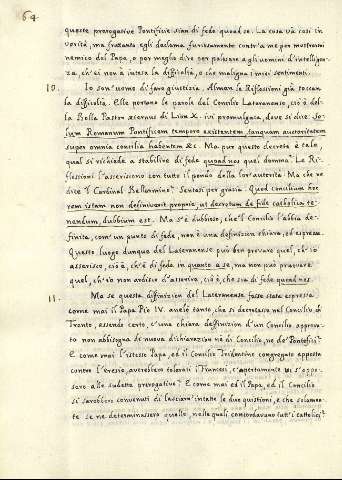 64
queste prerogative Pontificie sian di fede quoad se. La cosa và così in
verità, ma frattanto egli declama furiosamente contr'a me per mostrarmi
nemico del Papa, o per meglio dire per palesare agl'uomini d'intelligen-
za, ch'ei non à intesa la difficoltà, o che maligna i miei sentimenti.
10. Io son'uomo di fare giustizia. Almen le Riflessioni già toccan
la difficoltà. Elle portano le parole del Concilio Lateranense, cioè del-
la Bolla Pastor æternus di Lion X. ivi promulgata, dove si dice: So-
lum Romanum Pontificem tempore existentem, tanquam auctoritatem
super omnia concilia habentem &c. Ma pur questo decreto è tale,
qual si richiede a stabilire di fede quoad nos quel domma? Le Ri-
flessioni l'asseriscono con tutto il pondo della lor'autorità. Ma che ne
dice il Cardinal Bellarmino? Sentasi per grazia. Quod concilium hoc
rem istam non definiverit proprie, ut decretum de fide catholica te-
nendum, dubbium est. Ma s'è dubbioso, che'l Concilio l'abbia de-
finita, com'un punto di fede, non è una definizion chiara, ed espressa.
Questo luogo dunque del Lateranense può ben provare quel, ch'io
asserisco, cioè, ch'è di fede in quanto a se, ma non può provare
quel, ch'io non ardisco d'asserire, cioè, che sia di fede quoad nos.
11. Ma se questa diffinizion del Lateranense fosse stata espressa
come mai il Papa Pio IV. anelò tanto, che si decretasse nel Concilio di
Trento, essendo certo, ch'una chiara definizione d'un Concilio approva-
to non abbisogna di nuova dichiarazion nè di Concilio, nè de' Pontefici?
E come mai l'istesso Papa, ed il Concilio Tridentino congregato apposta
contro l'eresie, averebbero tolerati i Francesi, ch'apertamente vi s'oppo-
sero alle sudette prerogative? E come mai ed il Papa, ed il Concilio
si sarebbero convenuti di lasciare intatte le due quistioni, e che solamen-
te se ne determinassero quelle, nelle quali concordavano tutt'i cattolici?